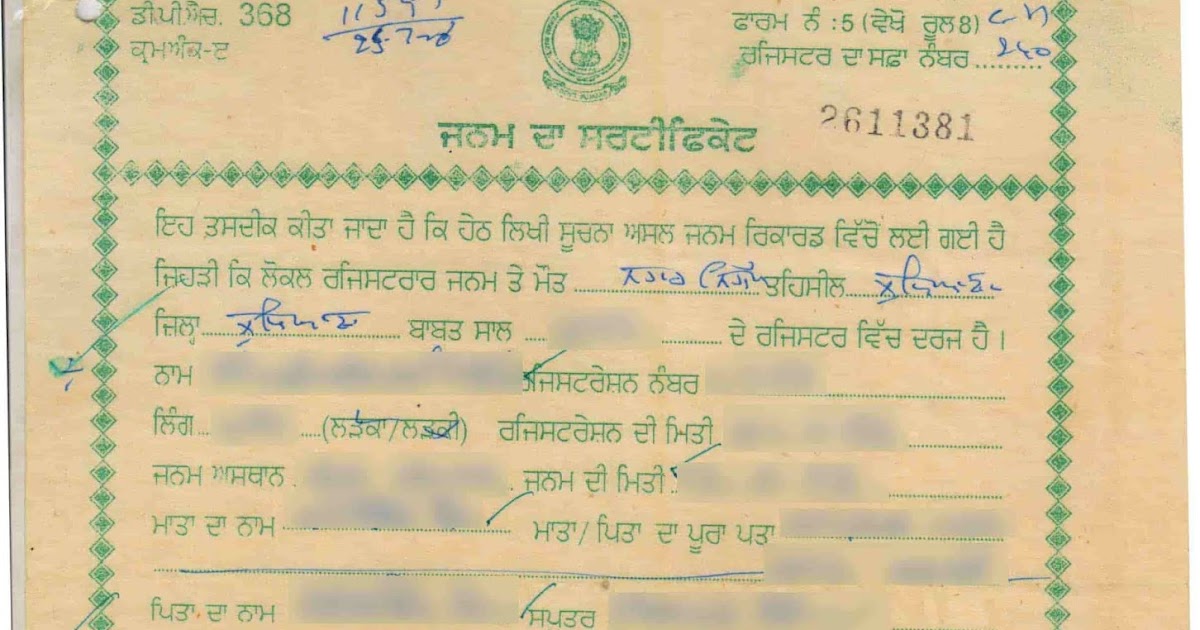 ਡੀ.ਪੀ.ਐਚ. 368
ਕ੍ਰਮਅੰਕ-ੲ
ਫਾਰਮ ਨੰ :5 (ਵੇਖੋ ਰੂਲ 8)
ਰਜਿਸਟਰ ਦਾ ਸਫ਼ਾ ਨੰਬਰ ..........
2611381
ਜਨਮ ਦਾ ਸਰਟੀਫਿਕੇਟ
ਇਹ ਤਸਦੀਕ ਕੀਤਾ ਜਾਂਦਾ ਹੈ ਕਿ ਹੇਠ ਲਿਖੀ ਸੂਚਨਾ ਅਸਲ ਜਨਮ ਰਿਕਾਰਡ ਵਿੱਚੋਂ ਲਈ ਗਈ ਹੈ
ਜਿਹੜੀ ਕਿ ਲੋਕਲ ਰਜਿਸਟਰਾਰ ਜਨਮ ਤੇ ਮੌਤ ਨਗਰ ਨਿਗਮ ਤਹਿਸੀਲ ਲੁਧਿਆਣਾ
ਜਿਲ੍ਹਾ ਲੁਧਿਆਣਾ ਬਾਬਤ ਸਾਲ ..... ਦੇ ਰਜਿਸਟਰ ਵਿੱਚ ਦਰਜ ਹੈ।
ਨਾਮ ਰਜਿਸਟਰੇਸ਼ਨ ਨੰਬਰ
ਲਿੰਗ.. ....(ਲੜਕਾ/ਲੜਕੀ) ਰਜਿਸਟਰੇਸ਼ਨ ਦੀ ਮਿਤੀ
ਜਨਮ ਅਸਥਾਨ . ਜਨਮ ਦੀ ਮਿਤੀ
ਮਾਤਾ ਦਾ ਨਾਮ ਮਾਤਾ/ਪਿਤਾ ਦਾ ਪੂਰਾ ਪਤਾ
ਪਿਤਾ ਦਾ ਨਾਮ ਸਪੁਤਰ